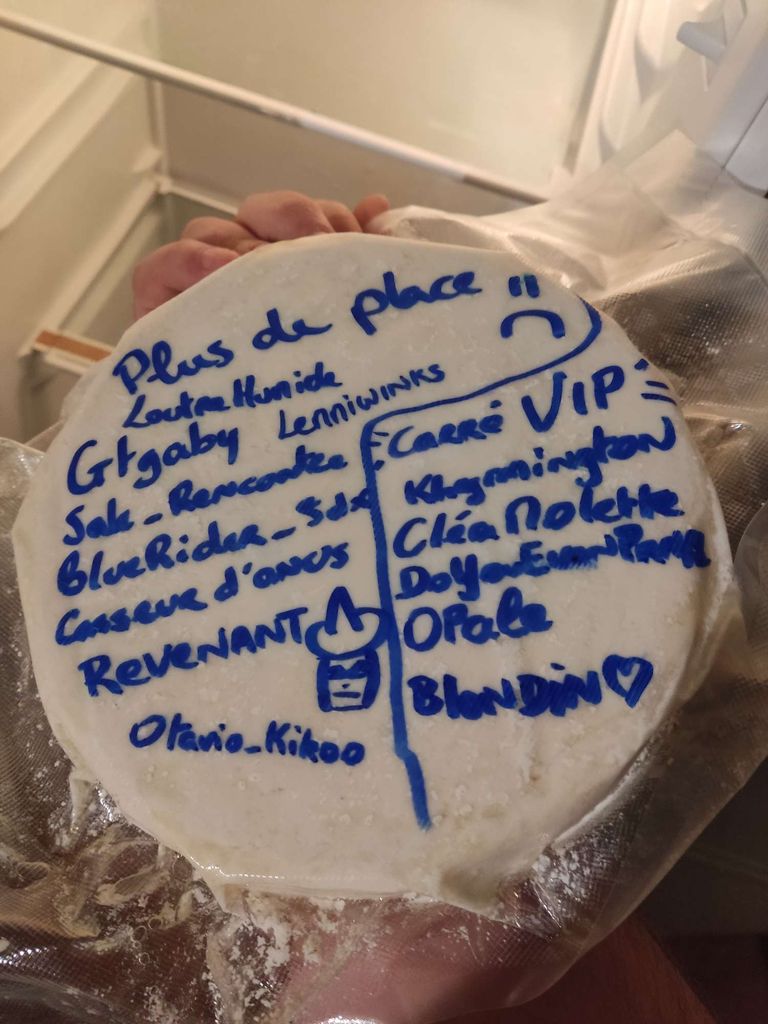 Plus de place
LoutreHumide
Gtgaby Lenniwinks
Sale_Rencontre
BlueRider_
Casseur d'anus
REVENANT
Otavio_Kikoo
Carré VIP
Khymmington
Cléa Molette
OPale
BlonDin